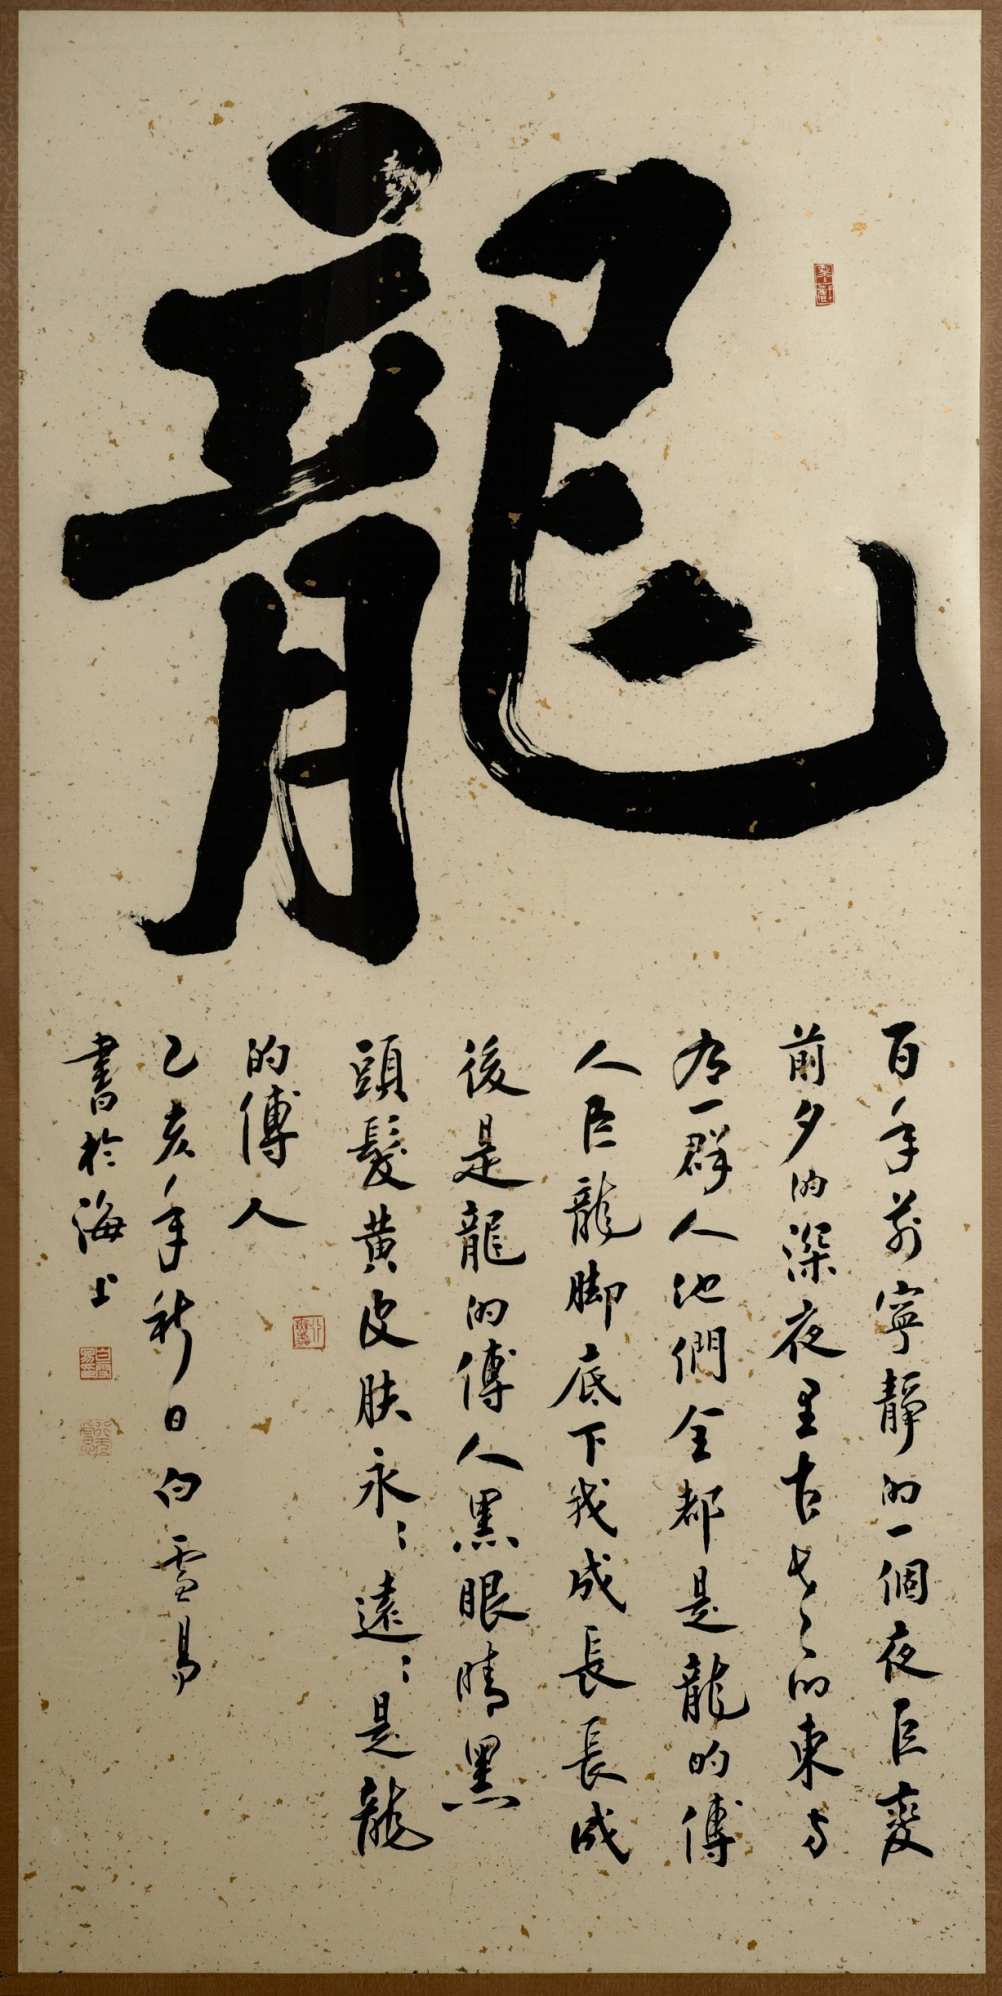 龍
百年前寧靜的一個夜巨變
前夕的深夜里古老〻的東方
有一群人他們全都是龍的傳
人巨龍脚底下我成長長成
後是龍的傳人黑眼睛黑
頭髮黄皮肤永〻遠〻是龍
的傳人
乙亥年秋日白雪易
書於海上